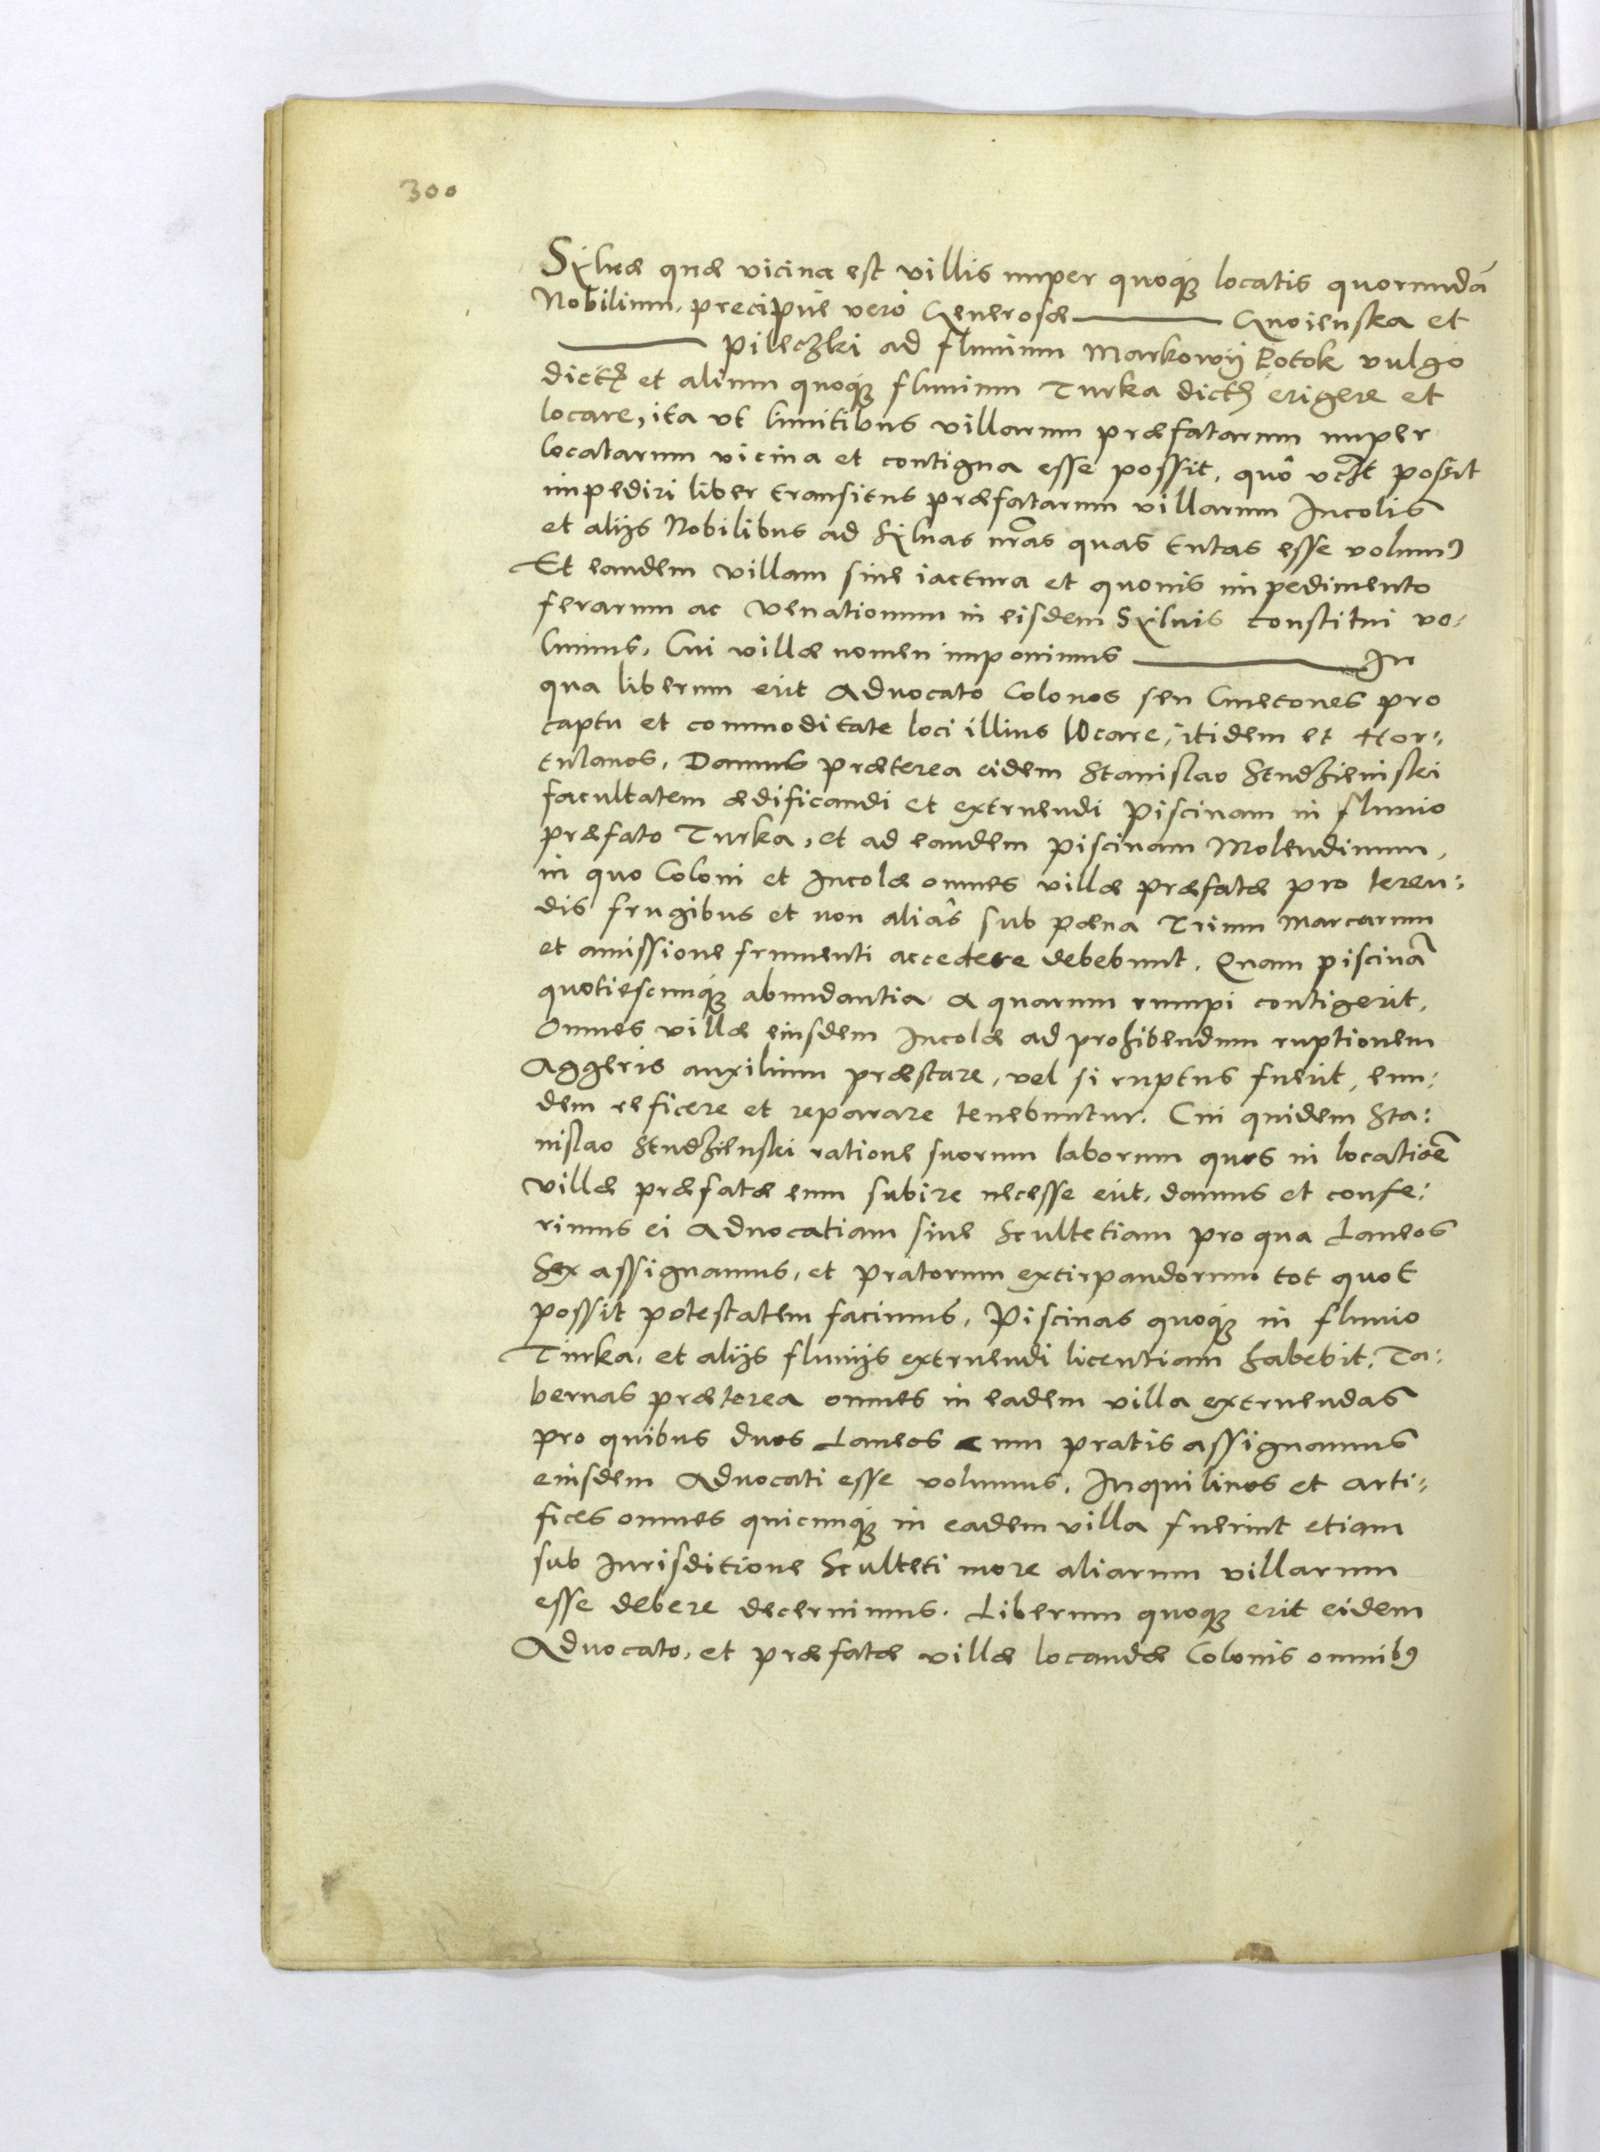 300
Sylvæ quæ vicina est villis nuper quoqꝫ locatis quorundā
Nobilium, precipue vero Generosæ ——— Gnoienska et
——— Pileczki ad fluuium Markowÿ Potok vulgo
dictꝫ et alium quoqꝫ fluuium Turka dictꝫ erigere et
locare, ita vt limitibus villarum præfatarum nuper
locatarum vicina et contigua esse possit, quô possit
impediri liber transitus præfatarum villarum Incolis
et alijs Nobilibus ad Syluas nr̃as quas tutas esse volumꝰ
Et eandem villam sine iactura et quouis impedimento
ferarum ac venationum in eisdem Syluis constitui vo:
lumus. Cui villæ nomen imponimus ——— In
qua liberum erit Aduocato Colonos seu Cmetones pro
captu et commoditate loci illius locare, itidem et Hor:
tulanos. Damus præterea eidem Stanislao Studzienski
facultatem ædificandi et extruendi Piscinam in fluuio
præfato Turka, et ad eandem piscinam Molendinum,
in quo Coloni et Incolæ omnes villæ præfatæ pro teren:
dis frugibus et non aliàs sub pæna Trium Marcarum
et amissione frumenti accedere debebunt. Quam piscinā
quotiescunqꝫ abundantia aquarum rumpi contigerit,
Omnes villæ eiusdem Incolæ ad prohibendum ruptionem
Aggeris auxilium præstare, vel si ruptus fuerit, eun:
dem reficere et reparare tenebuntur. Cui quidem Sta:
nislao Studzienski ratione suorum laborum quos in locatiōe
villæ præfatæ eum subire necesse erit, damus et confe:
rimus ei Aduocatiam siue Scultetiam pro qua Laneos
Sex assignamus, et pratorum extirpandorum tot quot
possit potestatem facimus, Piscinas quoqꝫ in fluuio
Turka, et alijs fluuijs extruendi licentiam habebit. Ta:
bernas præterea omnes in eadem villa extruendas
pro quibus duos Laneos cum pratis assignamus
eiusdem Aduocati esse volumus. Inquilinos et Arti:
fices omnes quicunqꝫ in eadem villa fuerint etiam
sub Iurisditione Sculteti more aliarum villarum
esse debere decernimus. Liberum quoqꝫ erit eidem
Aduocato, et præfatæ villæ locandæ Colonis omnibꝰ